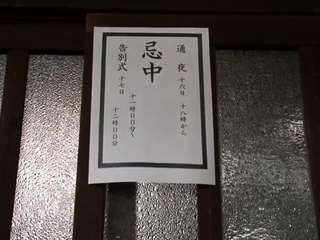 通夜 十六日 十八時から
忌中
告別式 十七日
十一時００分〜
十二時００分